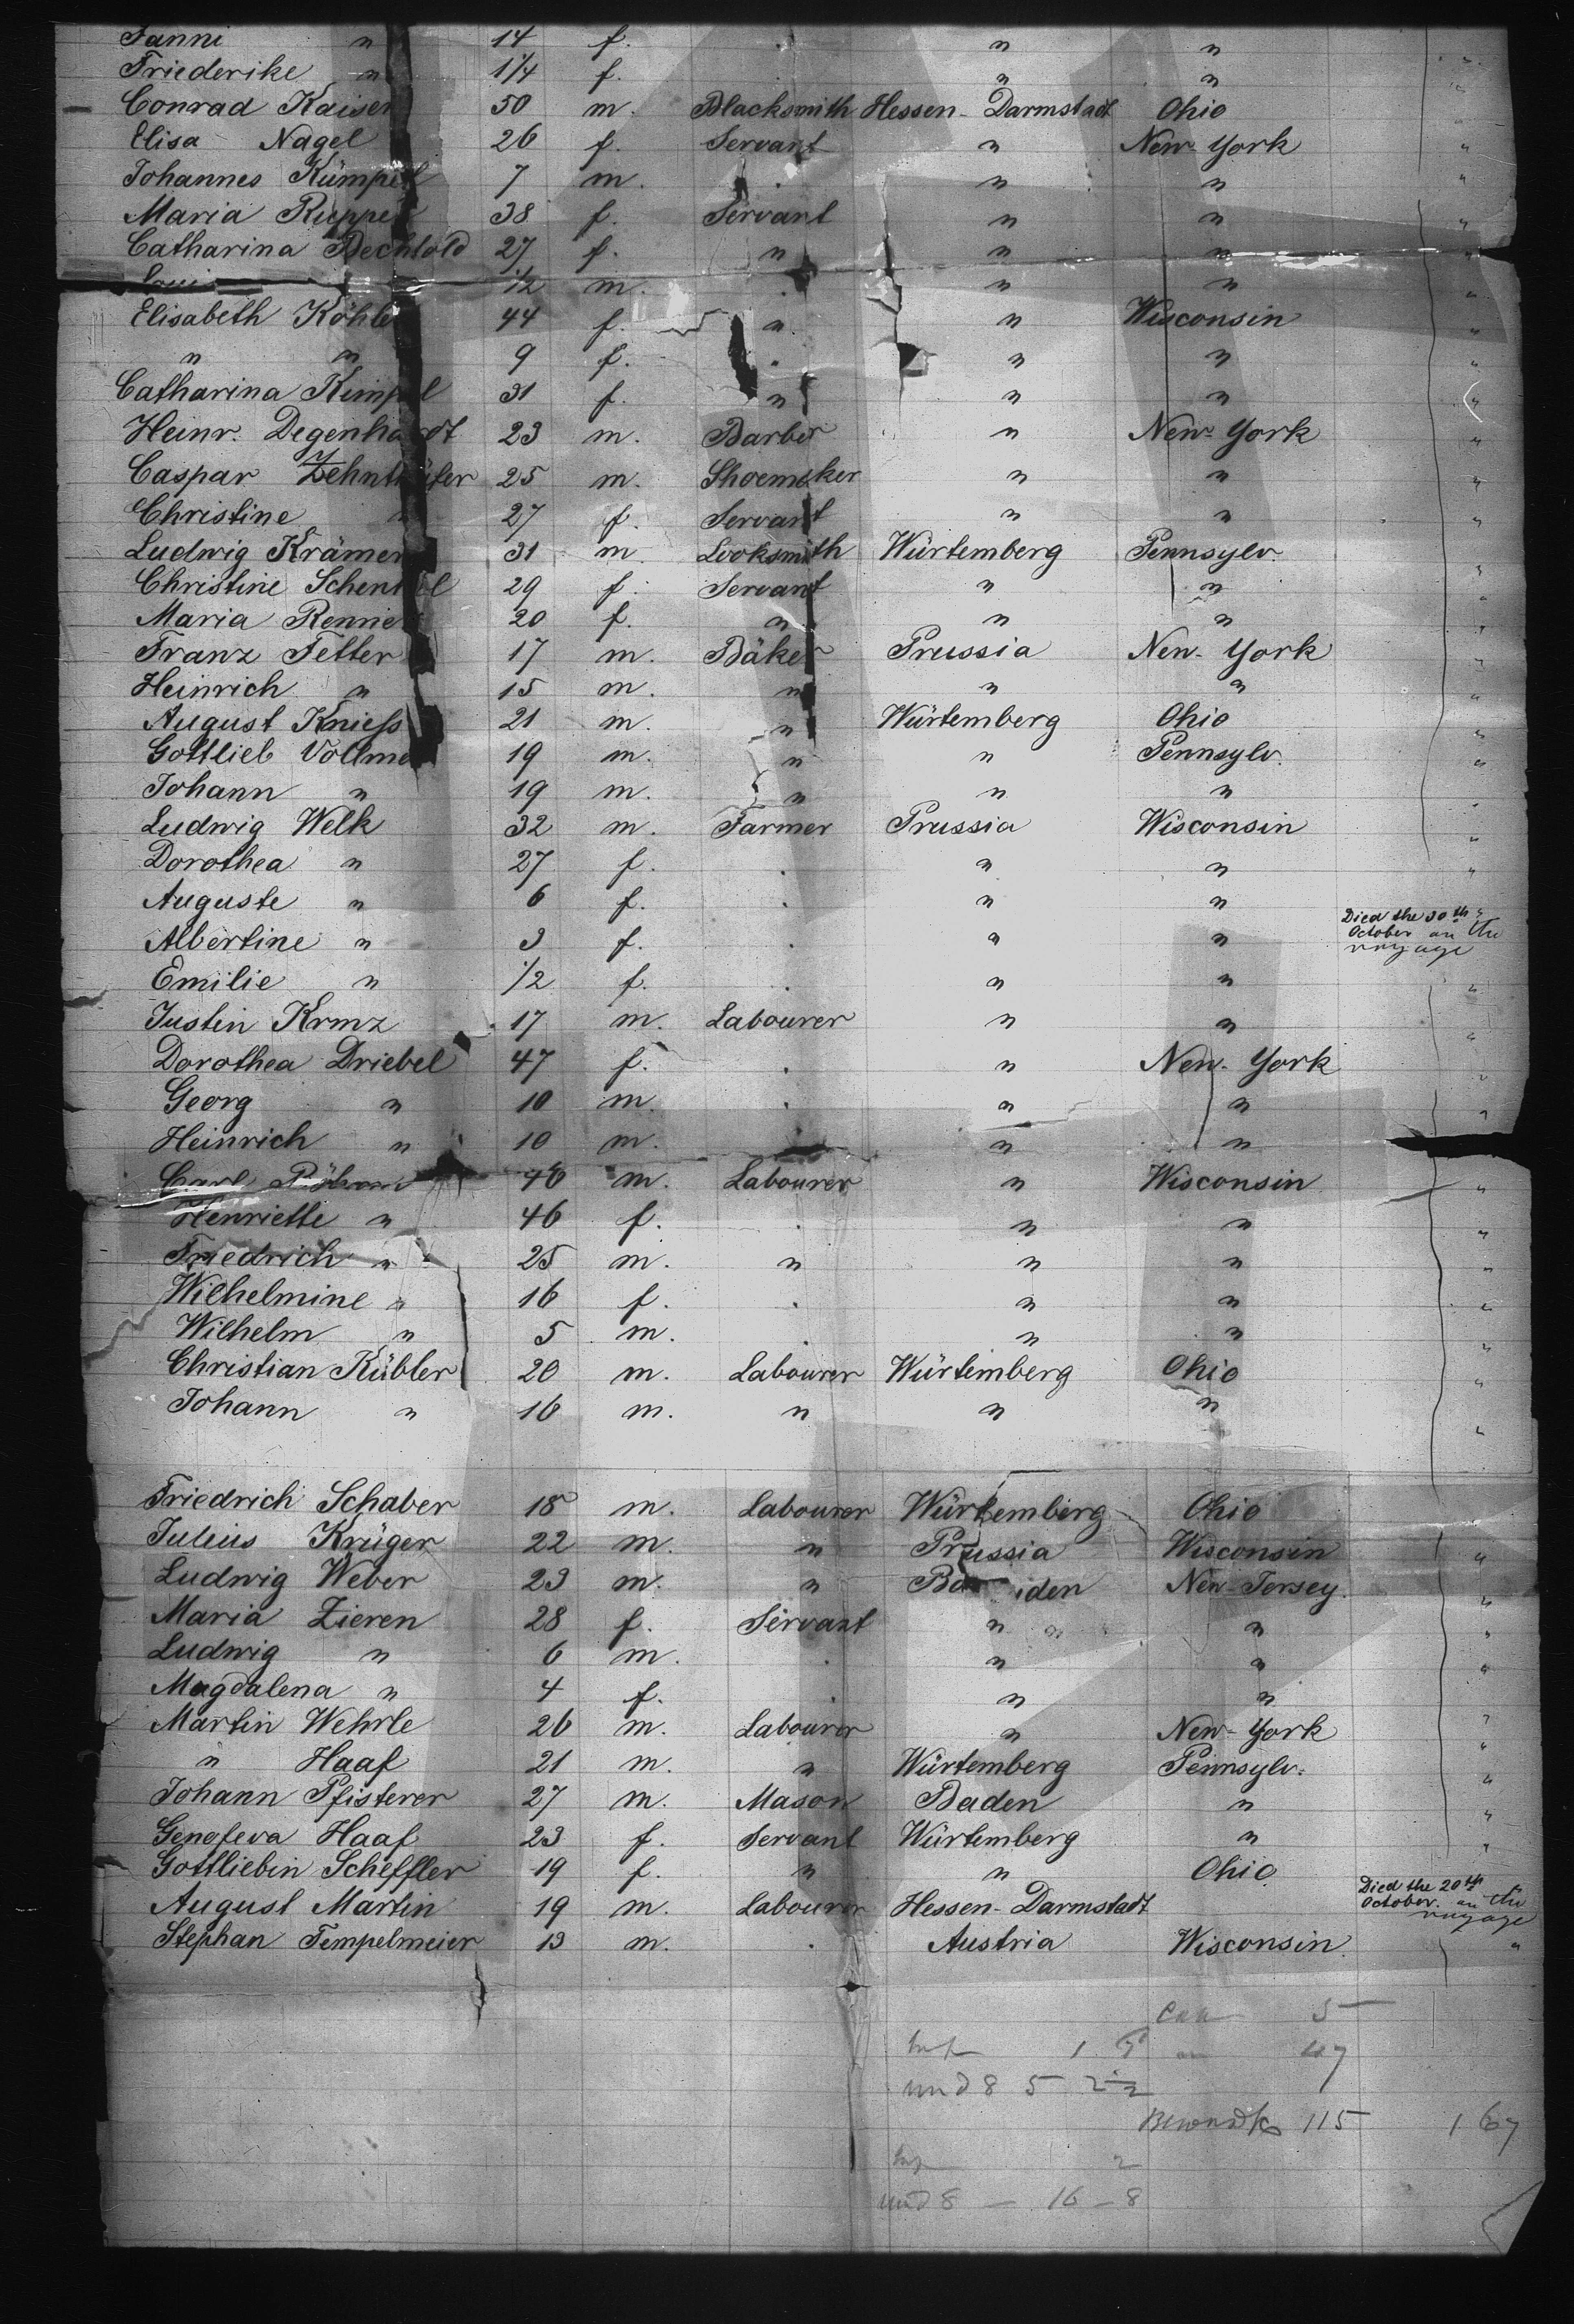 Fanni " 14 f. " "
Friederike " 1/4 f. " "
Conrad Kaiser 50 m. Blacksmith Hessen-Darmstadt Ohio "
Elisa Nagel 26 f. Servant " New-York "
Johannes Kümpel 7 m. " " "
Maria Ruppel 38 f. Servant " " "
Catharina Bechtold 27 f. " " " "
1/2 m. " " "
Elisabeth Köhler 44 f. " " Wisconsin "
" " 9 f. " " "
Catharina Kümpel 31 f. " " " "
Heinr. Degenhardt 23 m. Barber " New-York "
Caspar 25 m. Shoemaker " " "
Christine " 27 f. Servant " " "
Ludwig Krämer 31 m. Looksmith Würtemberg Pennsylv. "
Christine Schenkel 29 f. Servant " " "
Maria Renner 20 f. " " " "
Franz Fetter 17 m. Bäker Prussia New-York "
Heinrich " 15 m. " " " "
August Knießs 21 m. " Würtemberg Ohio "
Gottlieb Vollmer 19 m. " " Pennsylv. "
Johann " 19 m. " " " "
Ludwig Welk 32 m. Farmer Prussia Wisconsin "
Dorothea " 27 f. " " "
Auguste " 6 f. " " "
Albertine " 3 f. " " Died the 30th October on the voyage
Emilie " 1/2 f. " " "
Justin Krmz 17 m. Labourer " " "
Dorothea Driebel 47 f. " New-York "
Georg " 10 m. " " "
Heinrich " 10 m. " "
Carl 46 m. Labourer " Wisconsin "
Henriette " 46 f. " " "
Friedrich " 25 m. " " " "
Wilhelmine " 16 f. " " "
Wilhelm " 5 m. " " "
Christian Kübler 20 m. Labourer Würtemberg Ohio "
Johann " 16 m. " " " "
Friedrich Schaber 18 m. Labourer Würtemberg Ohio
Julius Krüger 22 m. " Prussia Wisconsin "
Ludwig Weber 23 m. " Baden New-Jersey. "
Maria Zieren 28 f. Servant " " "
Ludwig " 6 m. " " "
Magdalena " 4 f. " "
Martin Wehrle 26 m. Labourer " New-York "
" Haaf 21 m. " Würtemberg Pennsylv. "
Johann Pfisterer 27 m. Mason Baden " "
Genofeva Haaf 23 f. Servant Würtemberg " "
Gottliebin Scheffler 19 f. " " Ohio
August Martin 19 m. Labourer Hessen-Darmstadt Died the 20th October. on the voyage
Stephan Tempelmeier 13 m. Austria Wisconsin. "
5
1 47
und 8 5 2
115 167
2
und 8 — 16 — 8